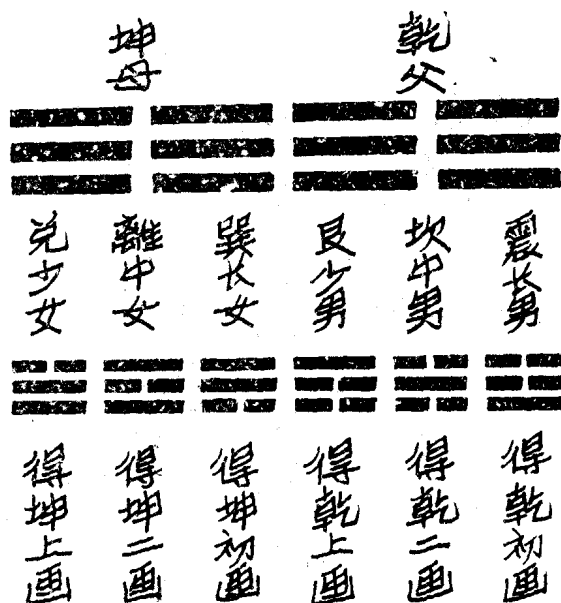 乾父
坤母
震长男
坎中男
艮少男
巽长女
離中女
兑少女
得乾初画
得乾二画
得乾上画
得坤初画
得坤二画
得坤上画